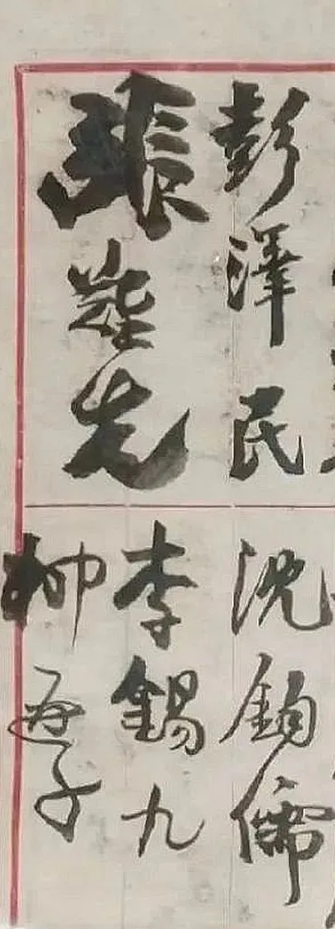 彭澤民
張難先
沈鈞儒
李錫九
柳亞子